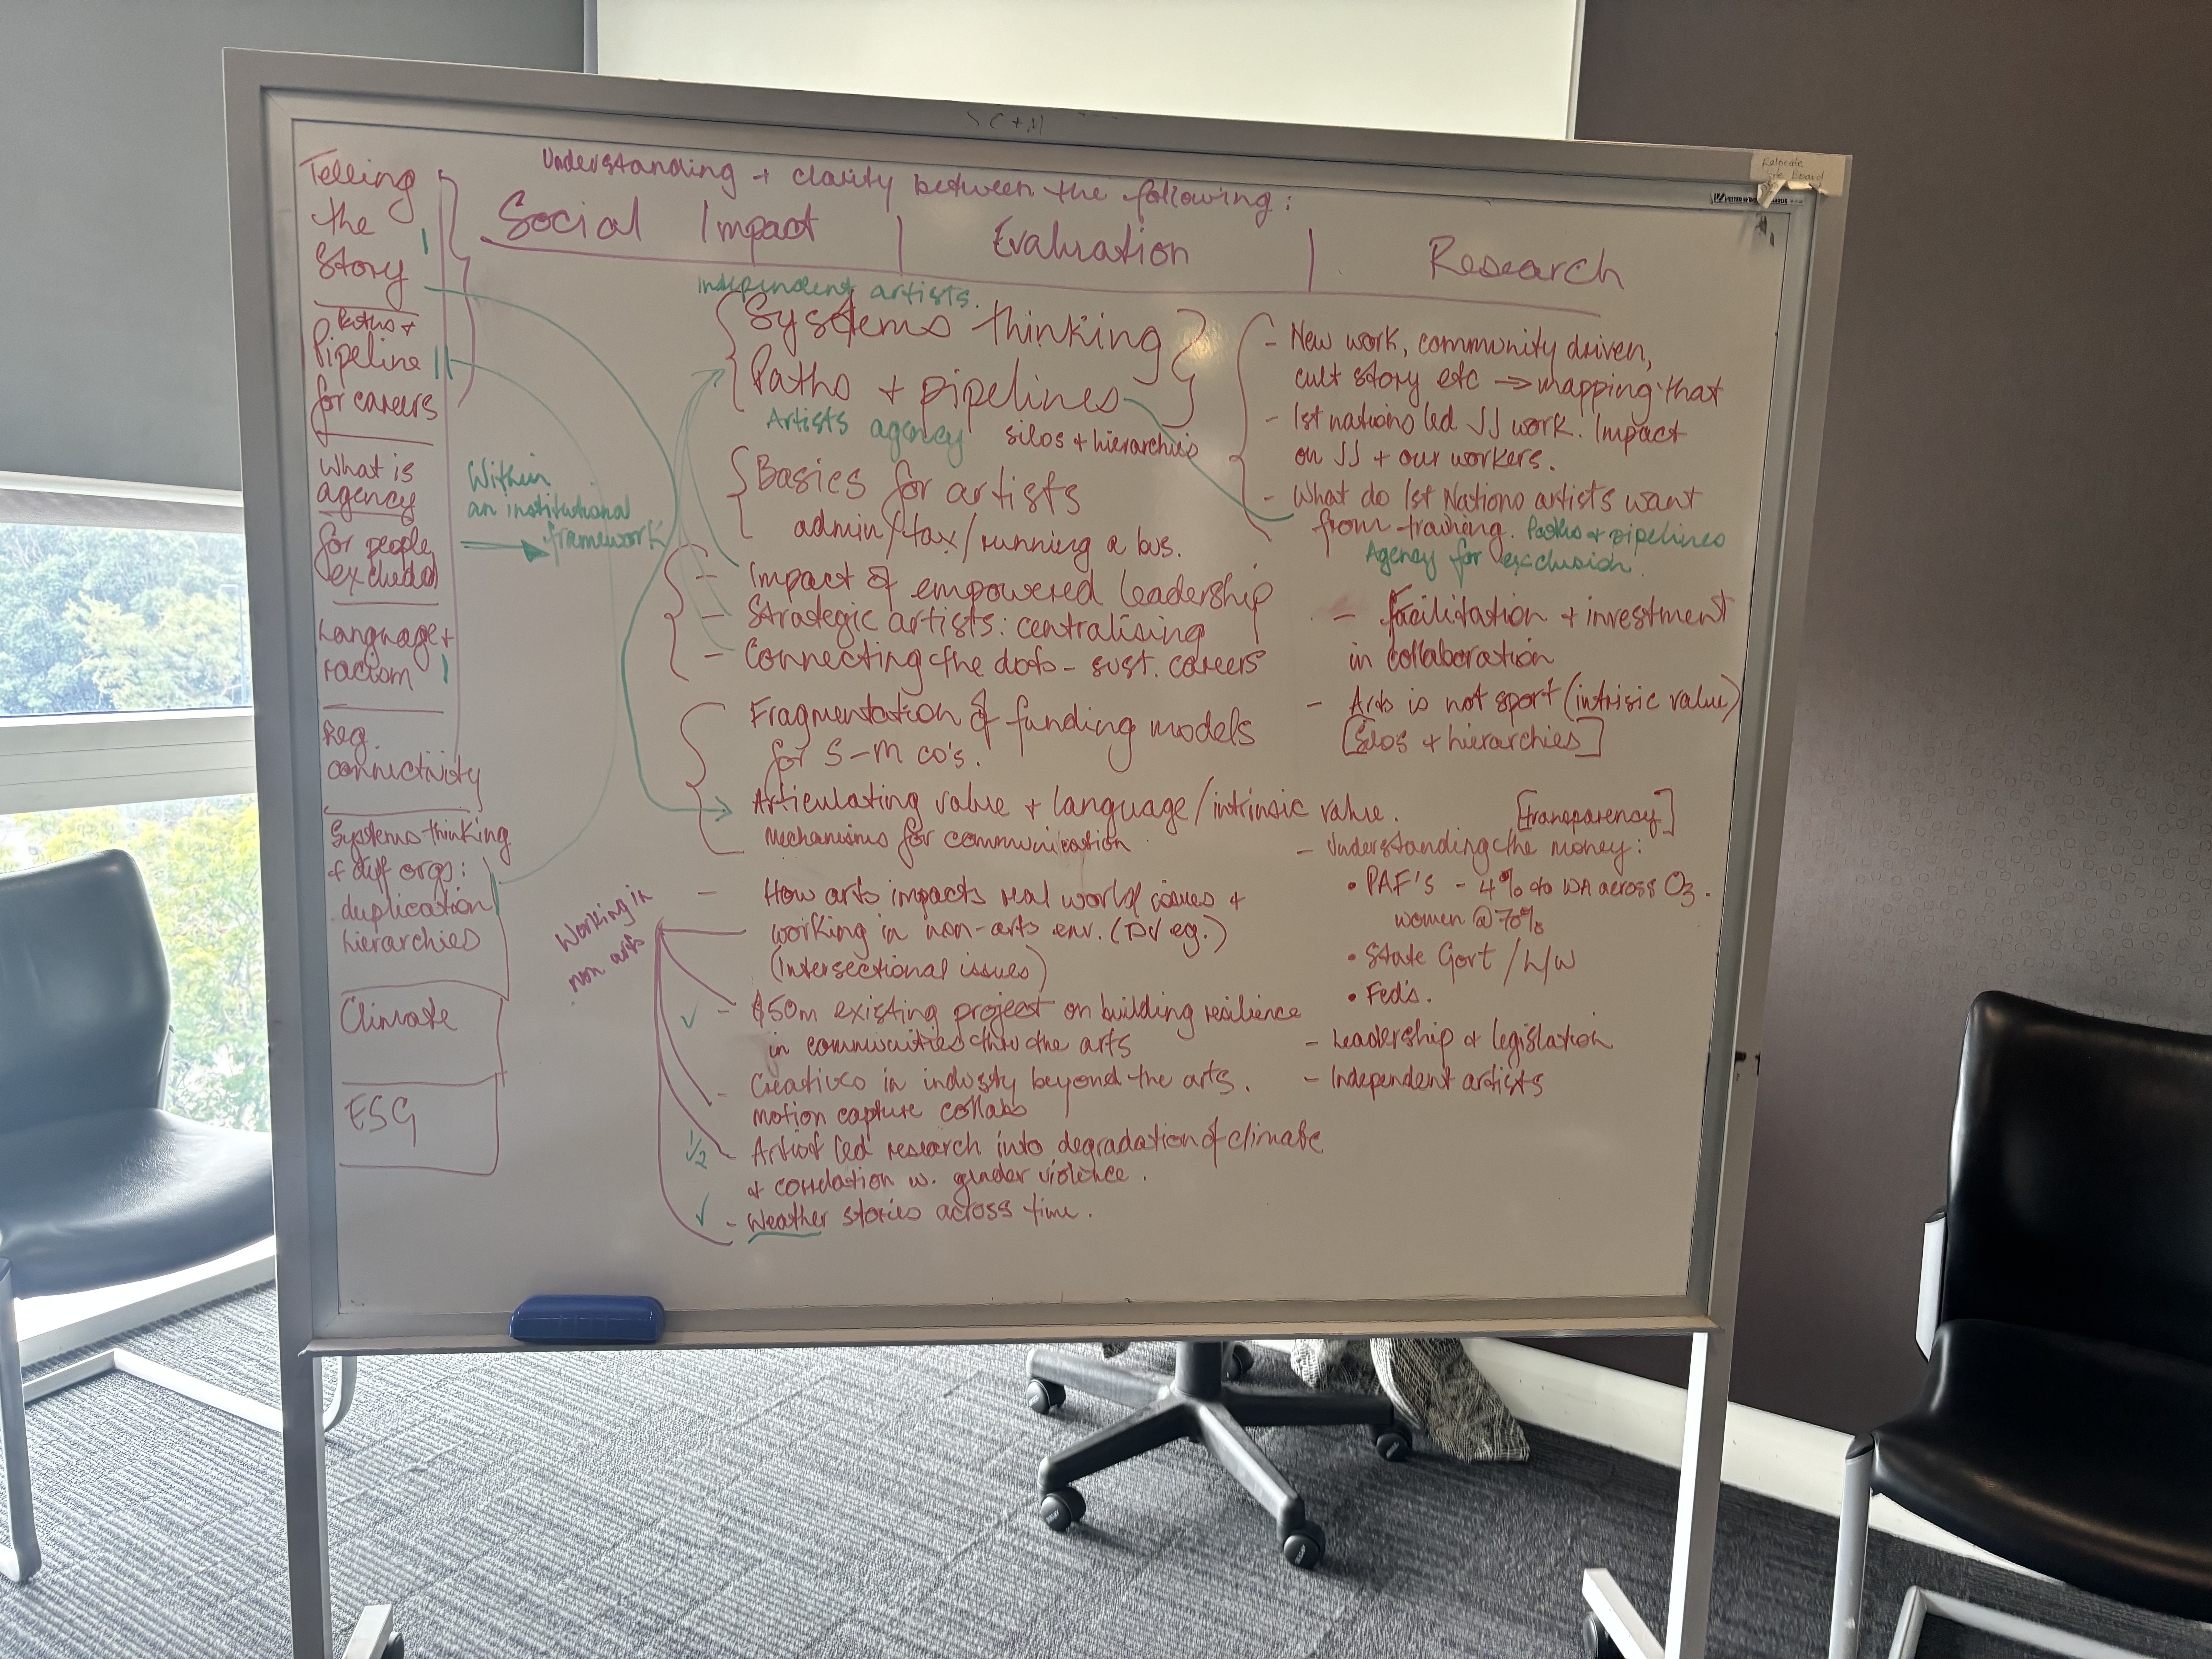 Understanding + clarity between the following:
Social Impact | Evaluation | Research
Telling
the
story
Paths +
Pipeline
for careers
What is
agency
for people
excluded
Language +
racism
Reg.
connectivity
Systems thinking
+ diff orgs:
duplication
hierarchies
Climate
ESG
Within
an institutional
framework
Independent artists.
Systems thinking
Paths + pipelines
Artists agency silos + hierarchies
Basics for artists
admin/tax/running a bus.
- Impact of empowered leadership
- Strategic artists: centralising
- Connecting the dots - sust. careers
Fragmentation of funding models
for S-M co's.
Articulating value + language/intrinsic value.
mechanisms for communication
Working in
non arts
- How arts impacts real world issues +
working in non-arts env. (DV eg.)
(Intersectional issues)
✓ - $50m existing project on building resilience
in communities thru the arts
- Creatives in industy beyond the arts.
motion capture collabs
1/2 Artist led research into degradation of climate
+ correlation w. gender violence.
✓ - Weather stories across time.
- New work, community driven,
cult story etc → mapping that
- 1st nations led JJ work. Impact
on JJ + our workers.
- What do 1st Nations artists want
from training. Paths + pipelines
Agency for exclusion.
- Facilitation + investment
in collaboration
- Arts is not sport (intrisic value)
[Silos + hierarchies]
[transparency]
- Understanding the money:
• PAF's - 4% to WA across Oz.
women @ 70%
• State Govt / L/W
• Fed's.
- Leadership + legislation
- Independent artists
Relocate
Board